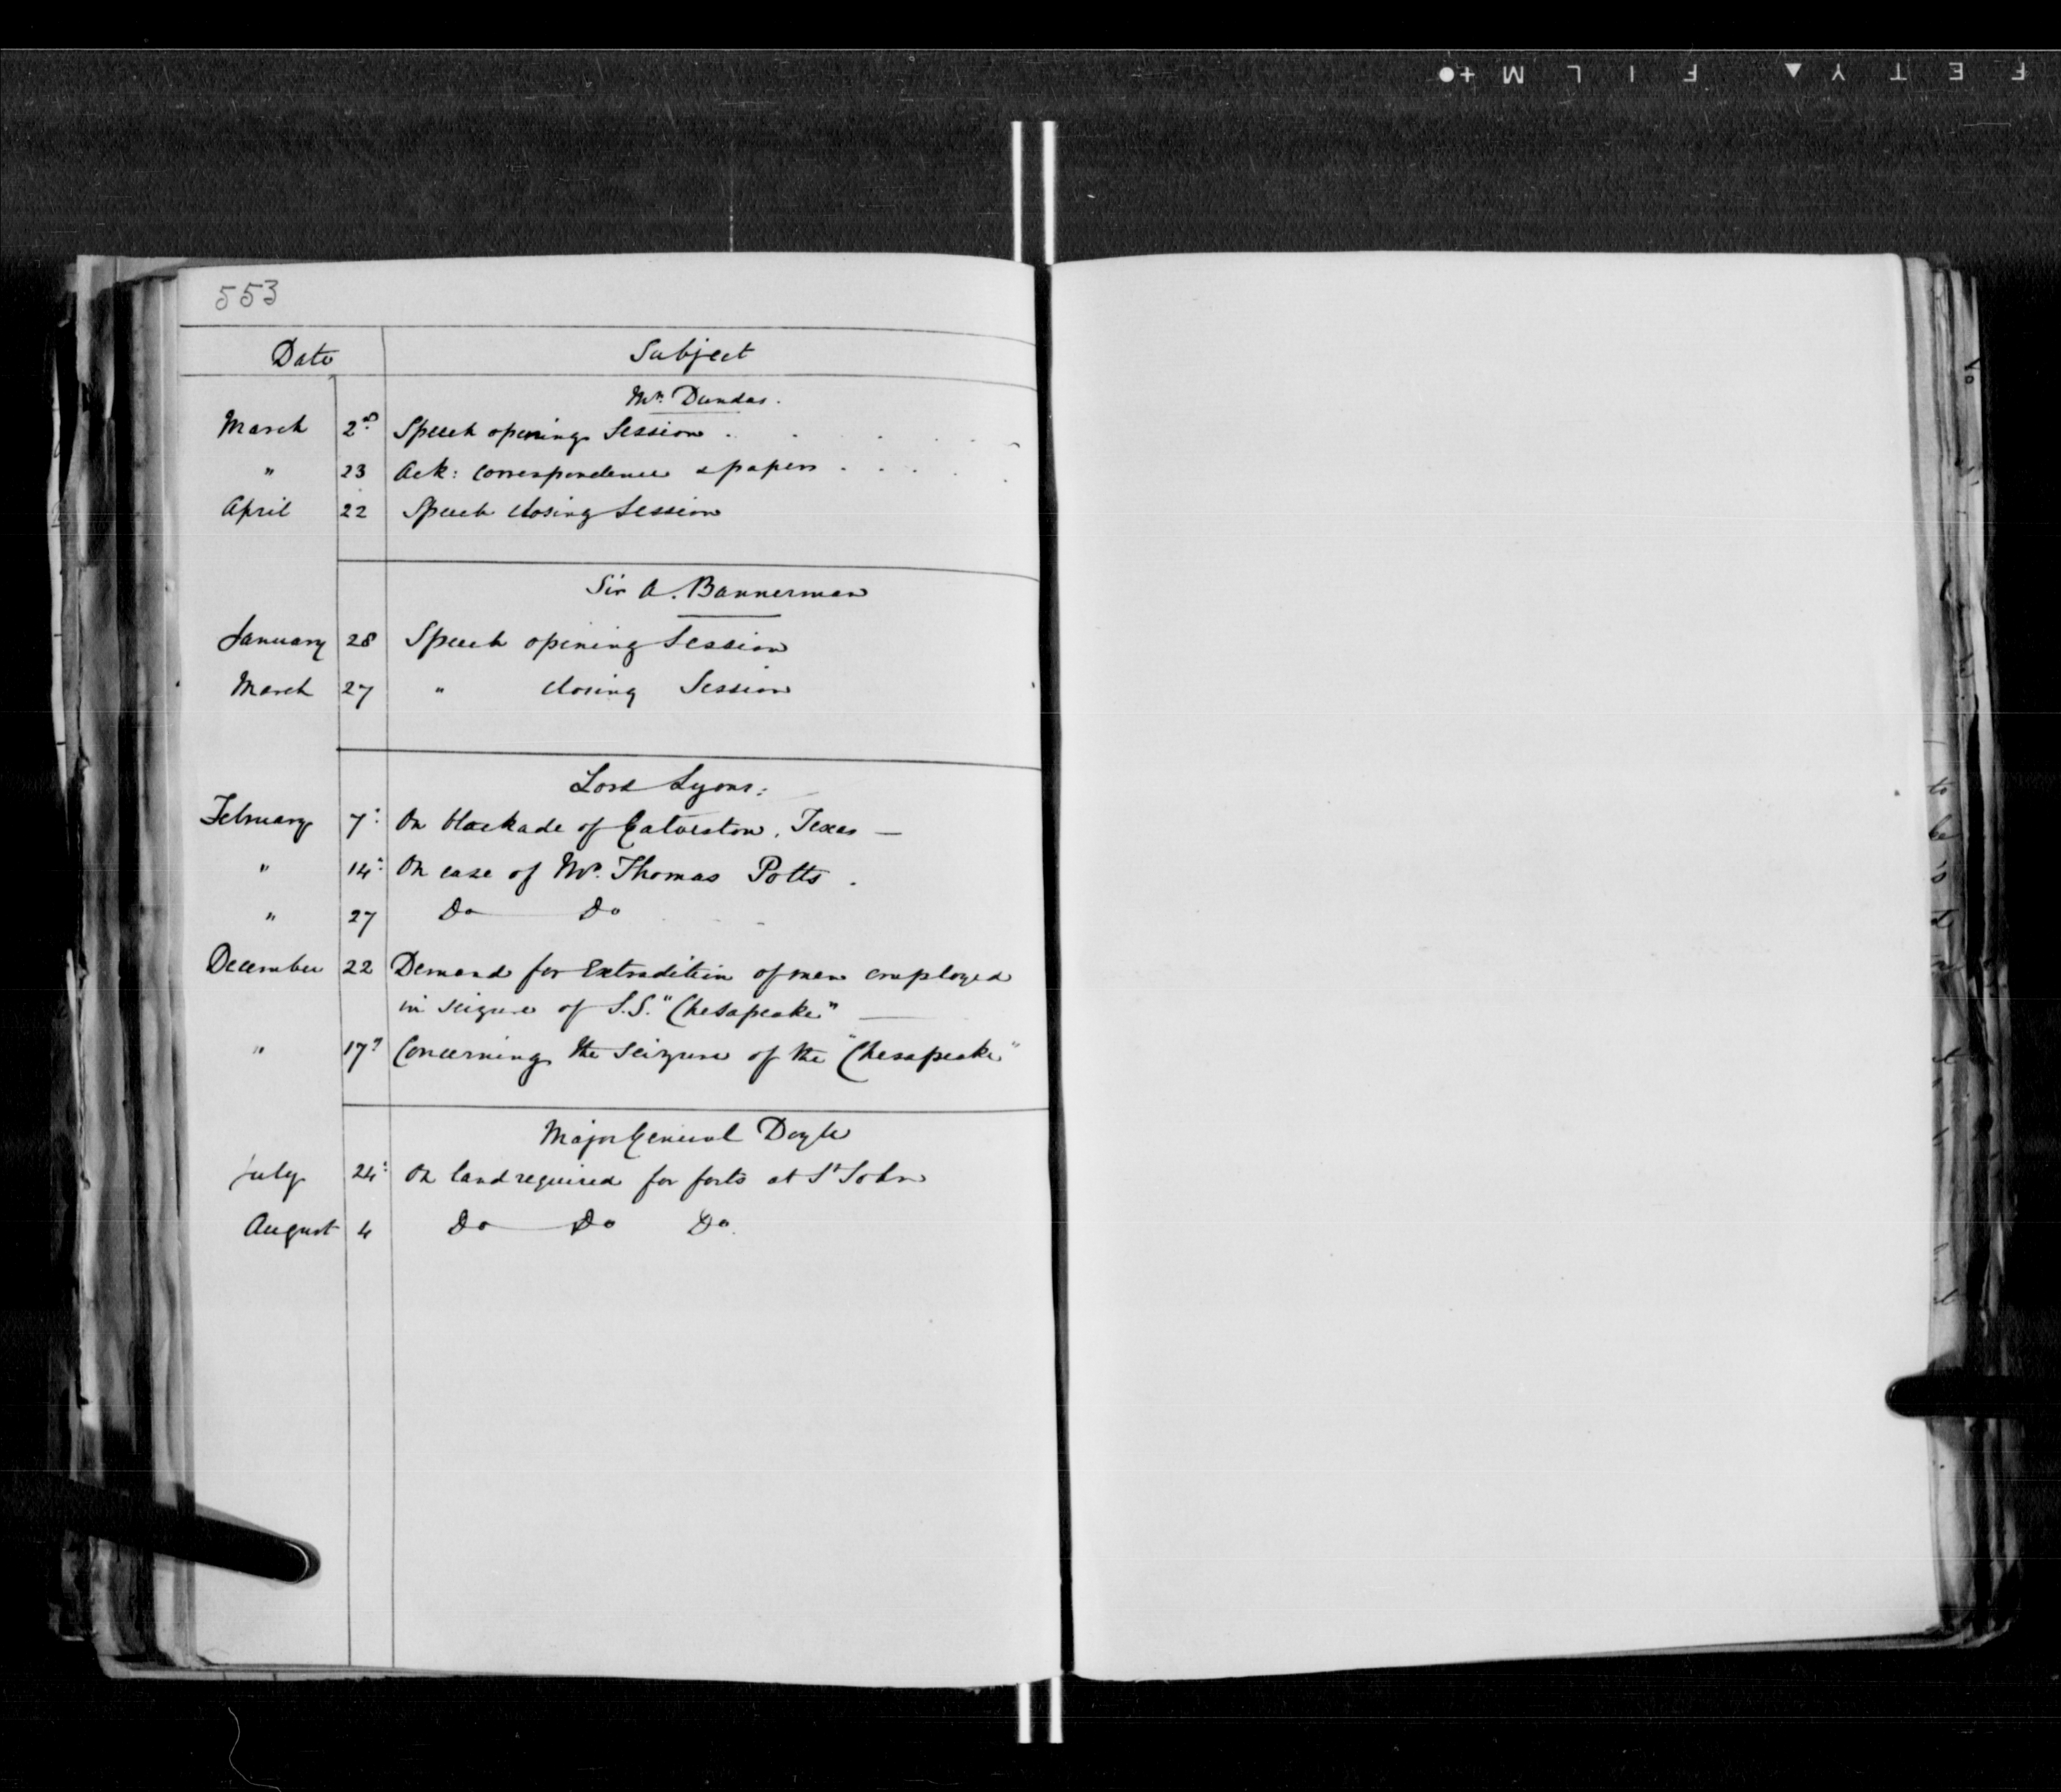 F E T Y ▲ F I L M +●
553
Date Subject
Mr. Dundas.
March 2nd Speech opening Session . . . . .
" 23 Ack: Correspondence & papers . . . .
April 22 Speech closing Session
Sir A. Bannerman
January 28 Speech opening Session
March 27 " closing Session
Lord Lyons:
February 7: On blockade of Galveston, Texas —
" 14: On case of Mr. Thomas Potts .
" 27 Do Do
December 22 Demand for Extradition of men employed
in seizure of S.S. "Chesapeake" —
" 17 Concerning the seizure of the "Chesapeake"
Major General Doyle
July 24: On land required for forts at St John
August 4 Do Do Do.